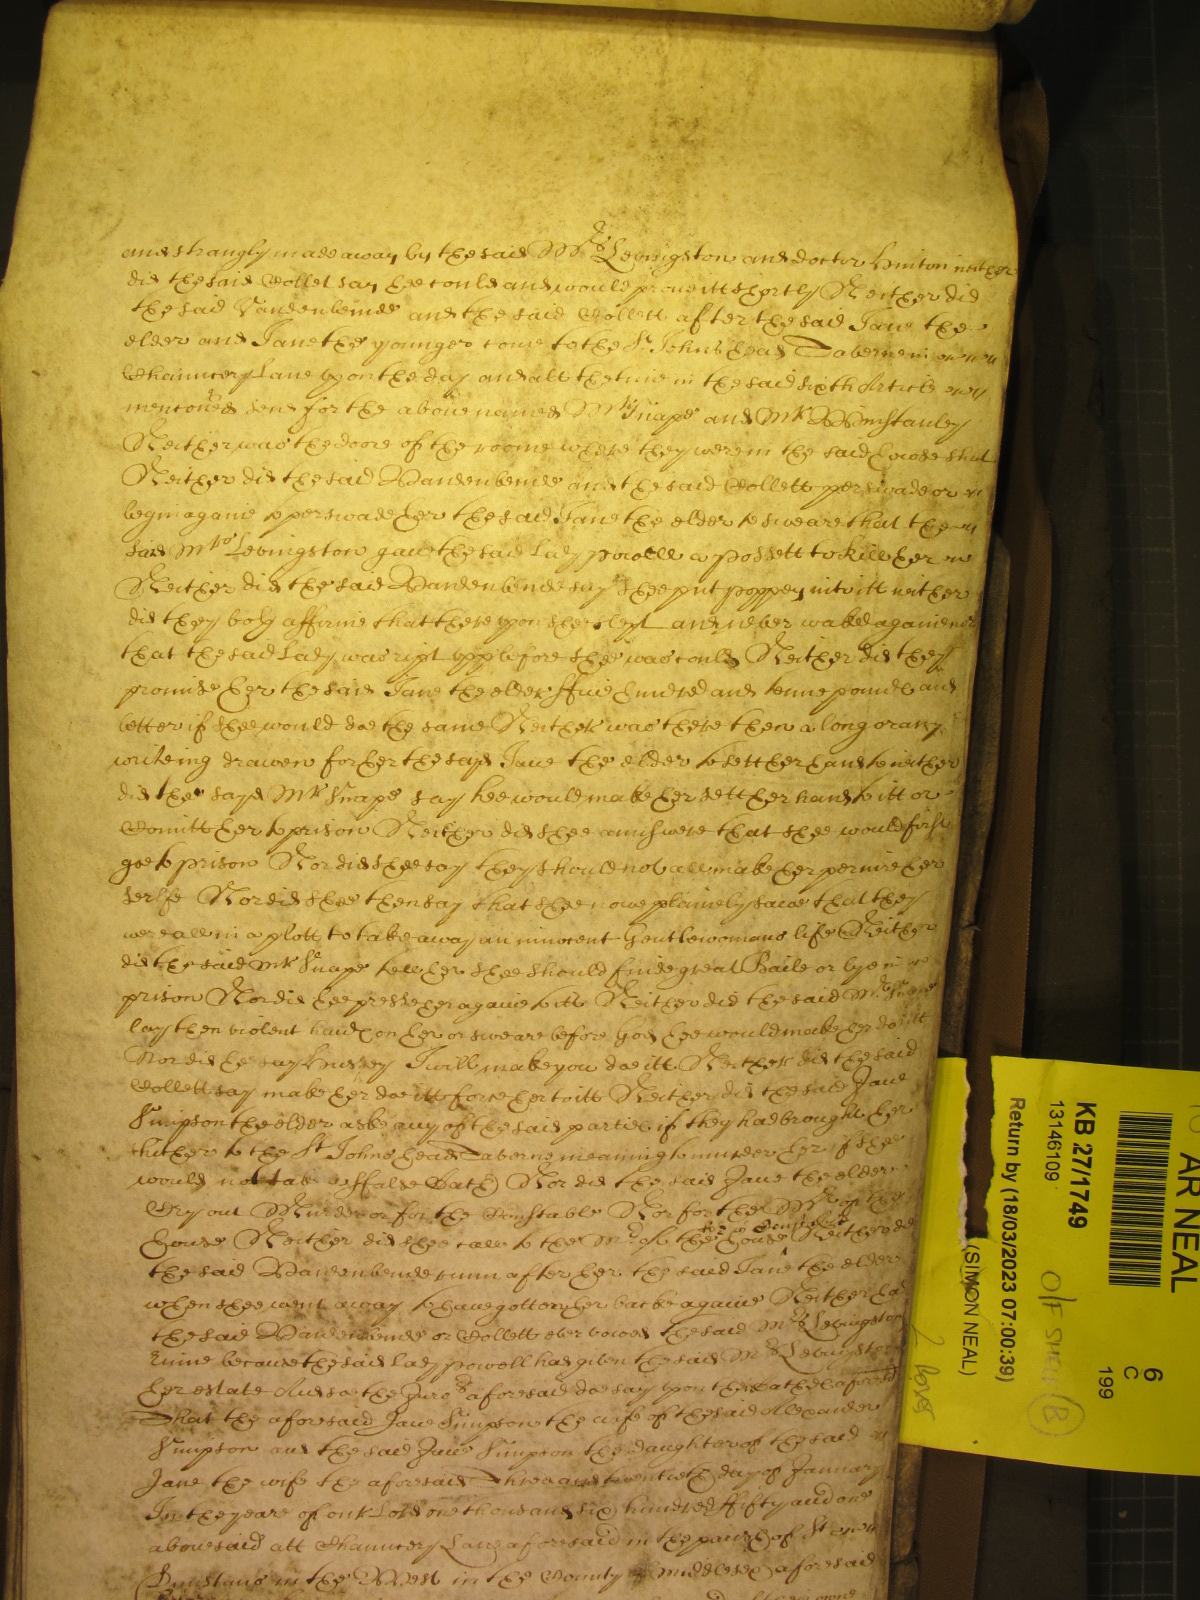 and strangly made away by the said Mrs Levingston and doctor Hinton neither
did the said Collet say hee could and would prove itt shortly Neither did
the said Vandenbende and the said Collett after the said Jane the
elder and Jane the younger come to the St Johns head Taberne in
Chauncery Lane upon the day and att the time in the said sixth Article
mentioned send for the above named Mr Snape and Mr Winstanley
Neither was the doore of the roome where they were in the said howse shut
Neither did the said Vandenbende and the said Collett perswade or
begin againe to perswade her the said Jane the elder to sweare that the
said Mrs Levingston gave the said Lady Powell a possett to kill her
Neither did the said Vandenbende say shee put poppey into itt neither
did they both affirme that thereupon shee slept and never waked againe nor
that the said Lady was ript upp before shee was could Neither did they
promise her the said Jane the elder ffive hundred and tenne pounds and
better if shee would doe the same Neither was there then a long or any
writeing drawen for her the sayd Jane the elder to sett her hand to neither
did the sayd Mr Snape say hee would make her sett her hand to itt or
Comitt her to prison Neither did shee answere that shee would first
goe to prison Nor did shee say they should not all make her perjure her
selfe Nor did shee then say that shee nowe plainely sawe that they
were all in a plott to take away an innocent Gentlewomans life Neither
did the said Mr Snape tell her shee should finde great Baile or lye in
prison Nor did hee presse her againe to itt Neither did the said Mr Snape
lay then violent hands on her or sweare before God hee would make her doe itt
Nor did he say hussey I will make you doe itt Neither did the said
Collett say make her doe itt force her to itt Neither did the said Jane
Simpson the elder aske any of the said parties if they had brought her
thither to the St Johns head Taberne meaning to murder her if shee
would not take a ffalse Oath Nor did the said Jane the elder
Cry out Murder or for the Constable Nor for the Mr of the
house Neither did shee call to the Mr of the house for a Constable Neither did
the said Vandenbende runn after her the said Jane the elder
when shee went away to have gotten her backe againe Neither had
the said Vandenbende or Collett ever vowed the said Mrs Levingston
ruine because the said Lady Powell had given the said Mrs Levingston
her estate And soe the Juro's aforesaid doe say upon their oathes aforesaid
That the aforesaid Jane Simpson the wife of the said Alexander
Simpson and the said Jane Simpson the daughter of the said
Jane the wife the aforesaid Three and twentieth day of January
In the yeare of our Lord one thousand six hundred ffifty and one
abovesaid att Chauncery Lane aforesaid in the parish of St
Dunstans in the West in the County of Middlesex aforesaid
AR NEAL
KB 27/1749
13146109
Return by (18/03/2023 07:00:39)
(SIMON NEAL)
6
C
199
O/F
B
2 boxes